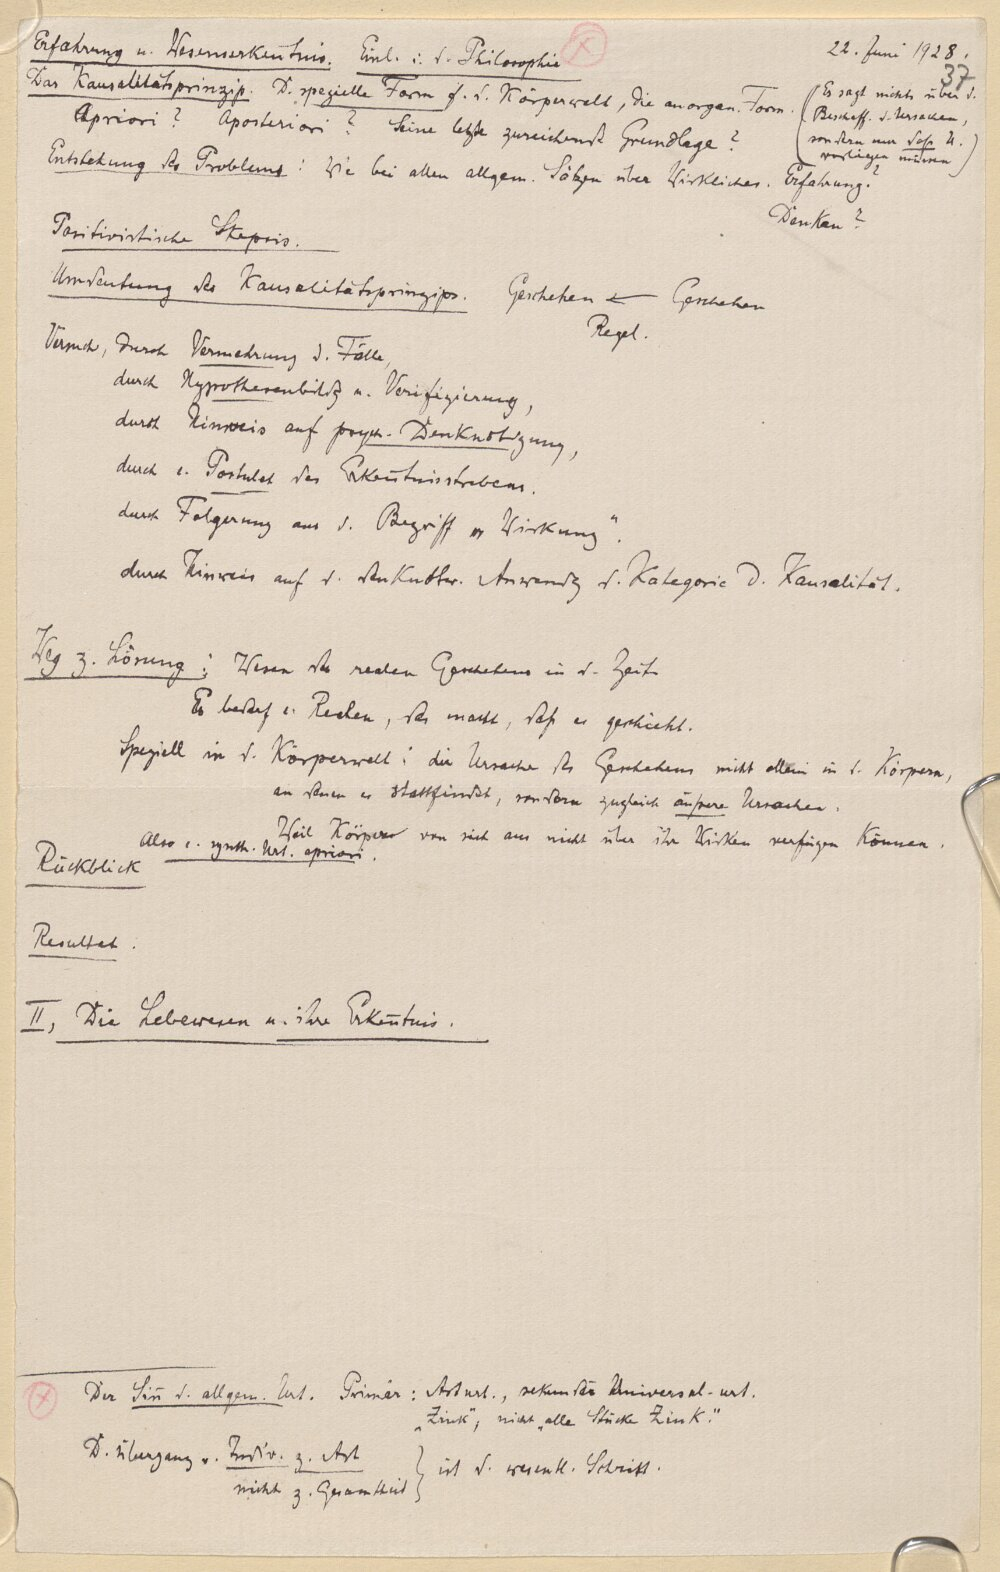 Erfahrung u. Wesenserkenntnis. Einl. i. d. Philosophie
22. Juni 1928.
37
Das Kausalitätsprinzip. D. spezielle Form f. d. Körperwelt, die anorgan. Form.
(Es sagt nichts über d.
Beschaff. d. Ursachen,
sondern nur daß U.
vorliegen müssen)
Apriori? Aposteriori? Seine letzte zureichende Grundlage?
Entstehung des Problems: Wie bei allen allgem. Sätzen über Wirkliches. Erfahrung?
Denken?
Positivistische Skepsis.
Umdeutung des Kausalitätsprinzips. Geschehen ← Geschehen
Regel.
Versuch, durch Vermehrung d. Fälle,
durch Hypothesenbildg u. Verifizierung,
durch Hinweis auf psych. Denknötigung,
durch e. Postulat des Erkenntnisstrebens.
durch Folgerung aus d. Begriff „Wirkung“.
durch Hinweis auf d. denknotw. Anwendg d. Kategorie d. Kausalität.
Weg z. Lösung: Wesen des realen Geschehens in d. Zeit
Es bedarf e. Realen, das macht, daß es geschieht.
Speziell in d. Körperwelt: die Ursache des Geschehens nicht allein in d. Körpern,
an denen es stattfindet, sondern zugleich äußere Ursachen.
Weil Körper von sich aus nicht über ihr Wirken verfügen können.
Also e. synth. Urt. apriori.
Rückblick
Resultat.
II, Die Lebewesen u. ihre Erkenntnis.
Der Sinn d. allgem. Urt. Primär: Arturt., sekundär Universal-urt.
„Zink“, nicht „alle Stücke Zink.“
D. Übergang v. Indiv. z. Art
nicht z. Gesamtheit } ist d. wesentl. Schritt.